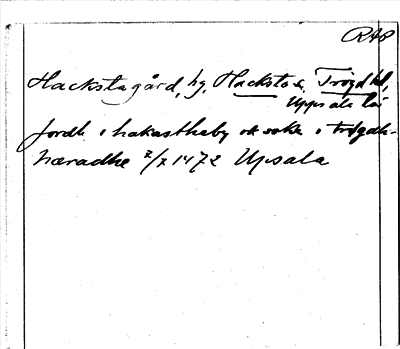 RAP
Hackstagård, hg, Hacksta s, Trögd hd,
Uppsala län
Jordh i hakasthaby ok sokn i trøgdh-
hæradhe 2/7 1472 Upsala